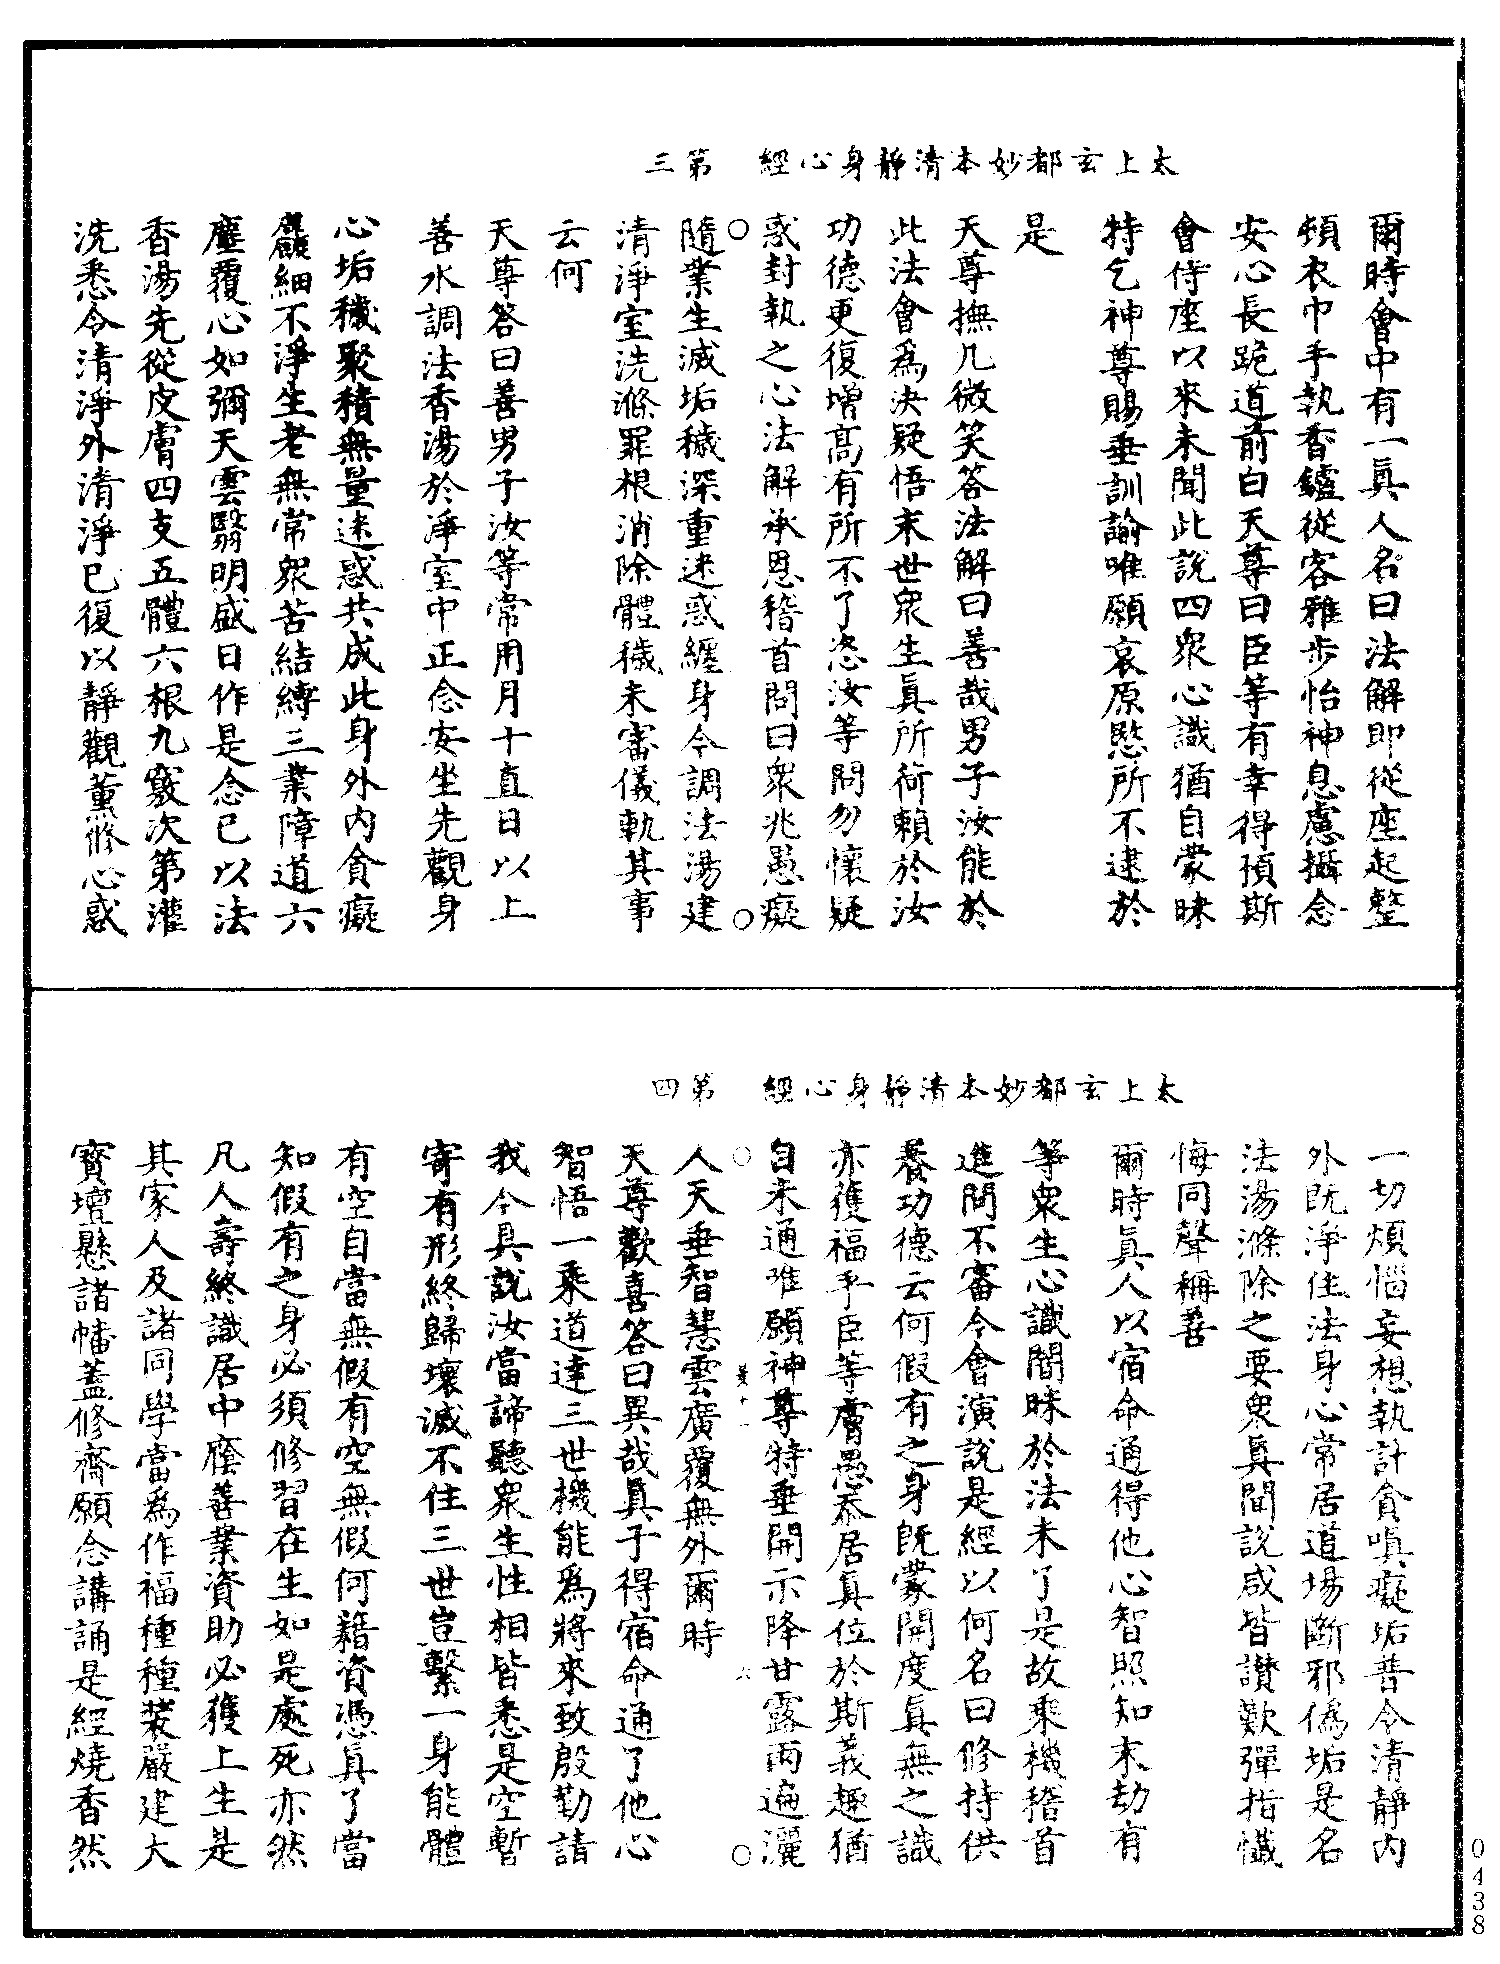 太上玄都妙本清靜身心經　第三
爾時會中有一真人名曰法解即從座起整
頓衣巾手執香鑪從容雅步怡神息慮攝念
安心長跪道前白天尊曰臣等有幸得預斯
會侍座以來未聞此說四眾心識猶自蒙昧
特乞神尊賜垂訓諭唯願哀原愍所不逮於
是
天尊撫几微笑答法解曰善哉男子汝能於
此法會為決疑悟末世眾生真所荷賴於汝
功德更復增高有所不了恣汝等問勿懷疑
惑封執之心法解承恩稽首問曰眾兆愚癡
隨業生滅垢穢深重迷惑纏身令調法湯建
清淨室洗滌罪根消除體穢未審儀軌其事
云何
天尊答曰善男子汝等常用月十直日以上
善水調法香湯於淨室中正念安坐先觀身
心垢穢聚積無量迷惑共成此身外內貪癡
麤細不淨生老無常眾苦結縛三業障道六
塵覆心如彌天雲翳明盛日作是念已以法
香湯先從皮膚四支五體六根九竅次第灌
洗悉令清淨外清淨已復以靜觀薰修心惑
太上玄都妙本清靜身心經　第四
一切煩惱妄想執計貪嗔癡垢普令清靜內
外既淨住法身心常居道場斷邪偽垢是名
法湯滌除之要眾真聞說咸皆讚歎彈指懺
悔同聲稱善
爾時真人以宿命通得他心智照知末劫有
等眾生心識闇昧於法未了是故乘機稽首
進問不審今會演說是經以何名曰修持供
養功德云何假有之身既蒙開度真無之識
亦獲福乎臣等膚愚忝居真位於斯義趣猶
自未通唯願神尊特垂開示降甘露雨遍灑
人天垂智慧雲廣覆無外爾時
天尊歡喜答曰異哉真子得宿命通了他心
智悟一乘道達三世機能為將來致殷勤請
我今具說汝當諦聽眾生性相皆悉是空暫
寄有形終歸壞滅不住三世豈繫一身能體
有空自當無假有空無假何藉資憑真了當
知假有之身必須修習在生如是處死亦然
凡人壽終識居中廕善業資助必獲上生是
其家人及諸同學當為作福種種裝嚴建大
寶壇懸諸幡蓋修齋願念講誦是經燒香然
0438